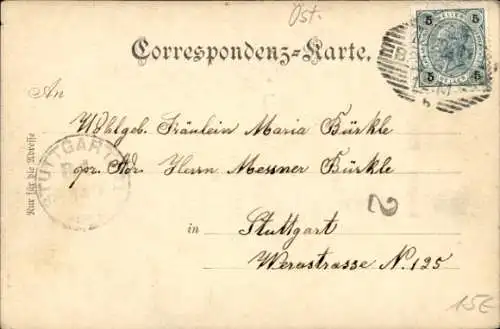 Öst.
Correspondenz-Karte.
5 5
HELLER
5 5
An
Wohlgeb. Fräulein Maria Bürkle
pr. Adr. Herrn Messner Bürkle
Nur für die Adresse
STUTTGART
2
in Stuttgart
Werastrasse N. 125
15€